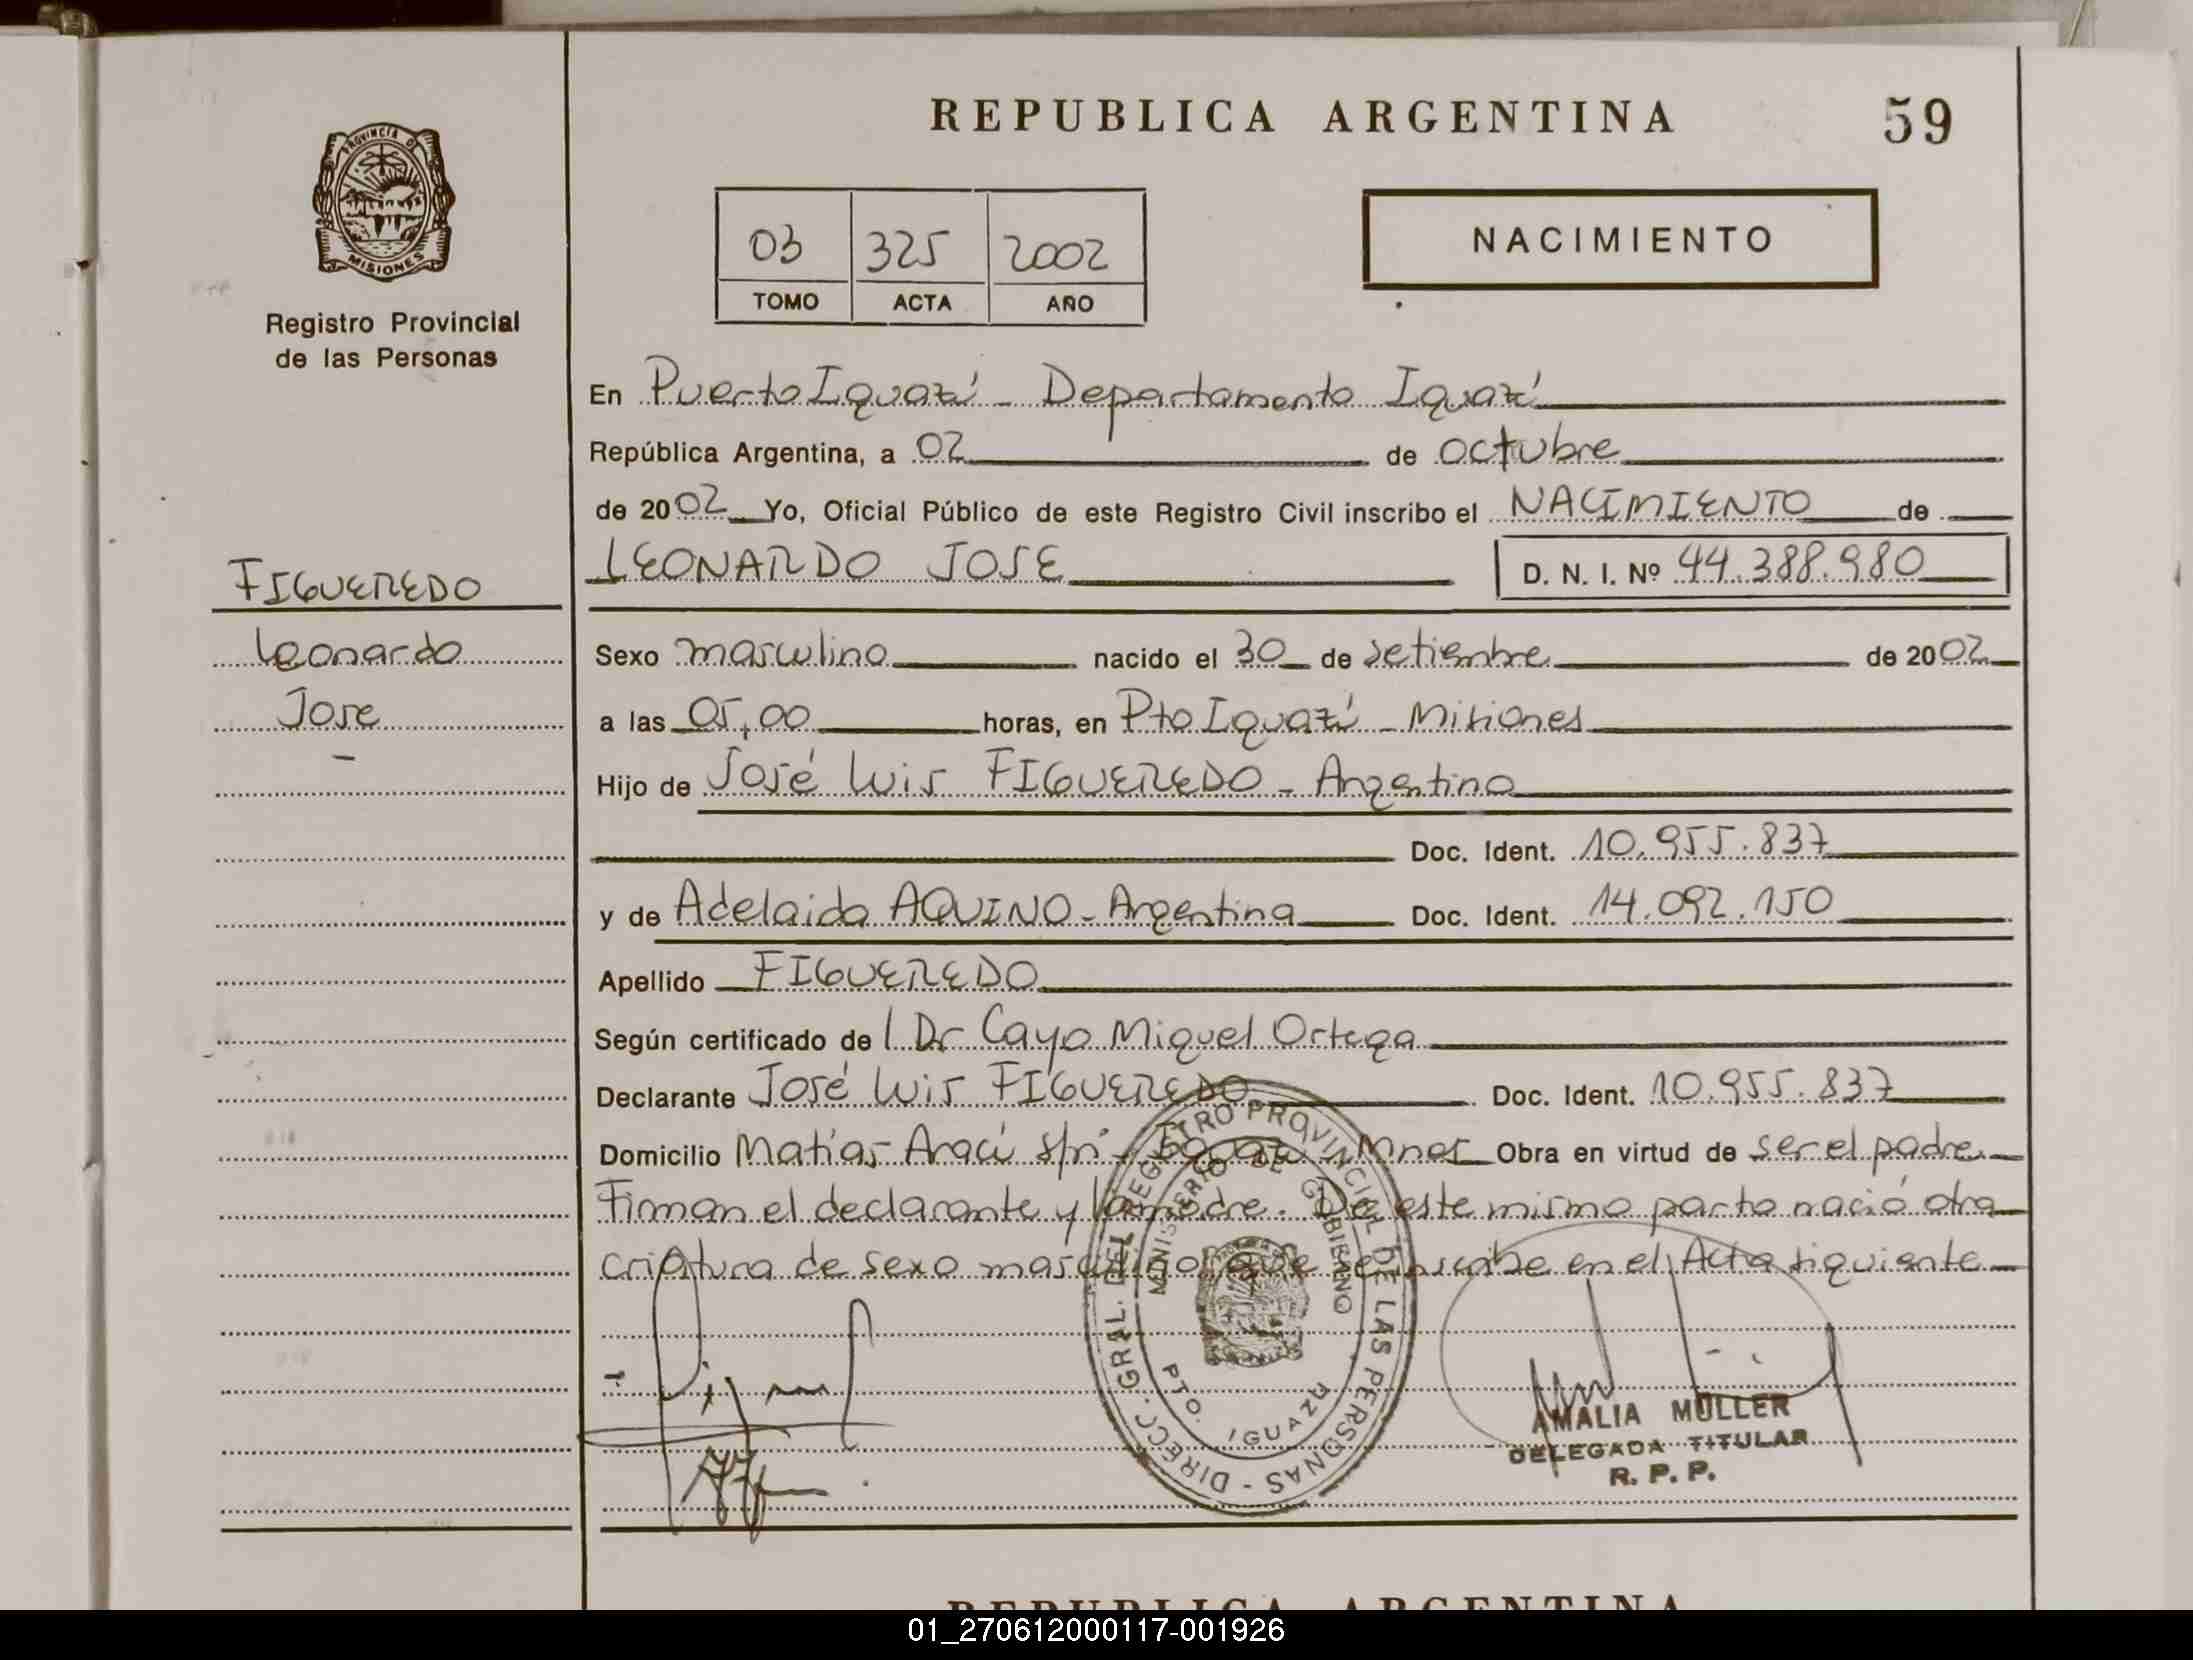 REPUBLICA ARGENTINA
59
PROVINCIA DE
MISIONES
Registro Provincial
de las Personas
03 325 2002
TOMO ACTA AÑO
NACIMIENTO
En Puerto Iguazú - Departamento Iguazú
República Argentina, a 02 de octubre
de 2002 Yo, Oficial Público de este Registro Civil inscribo el NACIMIENTO de
LEONARDO JOSE
D. N. I. Nº 44.388.980
FIGUEREDO
Leonardo
Jose
-
Sexo masculino nacido el 30 de setiembre de 2002
a las 05,00 horas, en Pto Iguazú - Misiones
Hijo de José Luis FIGUEREDO - Argentino
Doc. Ident. 10.955.837
y de Adelaida AQUINO - Argentina Doc. Ident. 14.092.150
Apellido FIGUEREDO
Según certificado de l Dr Cayo Miguel Ortega
Declarante José Luis FIGUEREDO Doc. Ident. 10.955.837
Domicilio Matías Aracú s/n - Mnes Obra en virtud de ser el padre
Firman el declarante y la madre. De este mismo parto nació otra
criatura de sexo masculino que se inscribe en el Acta siguiente
DIRECC. GRAL. DEL REGISTRO PROVINCIAL DE LAS PERSONAS -
MINISTERIO DE GOBIERNO
PTO. IGUAZU
AMALIA MULLER
DELEGADA TITULAR
R. P. P.
REPUBLICA ARGENTINA
01_270612000117-001926